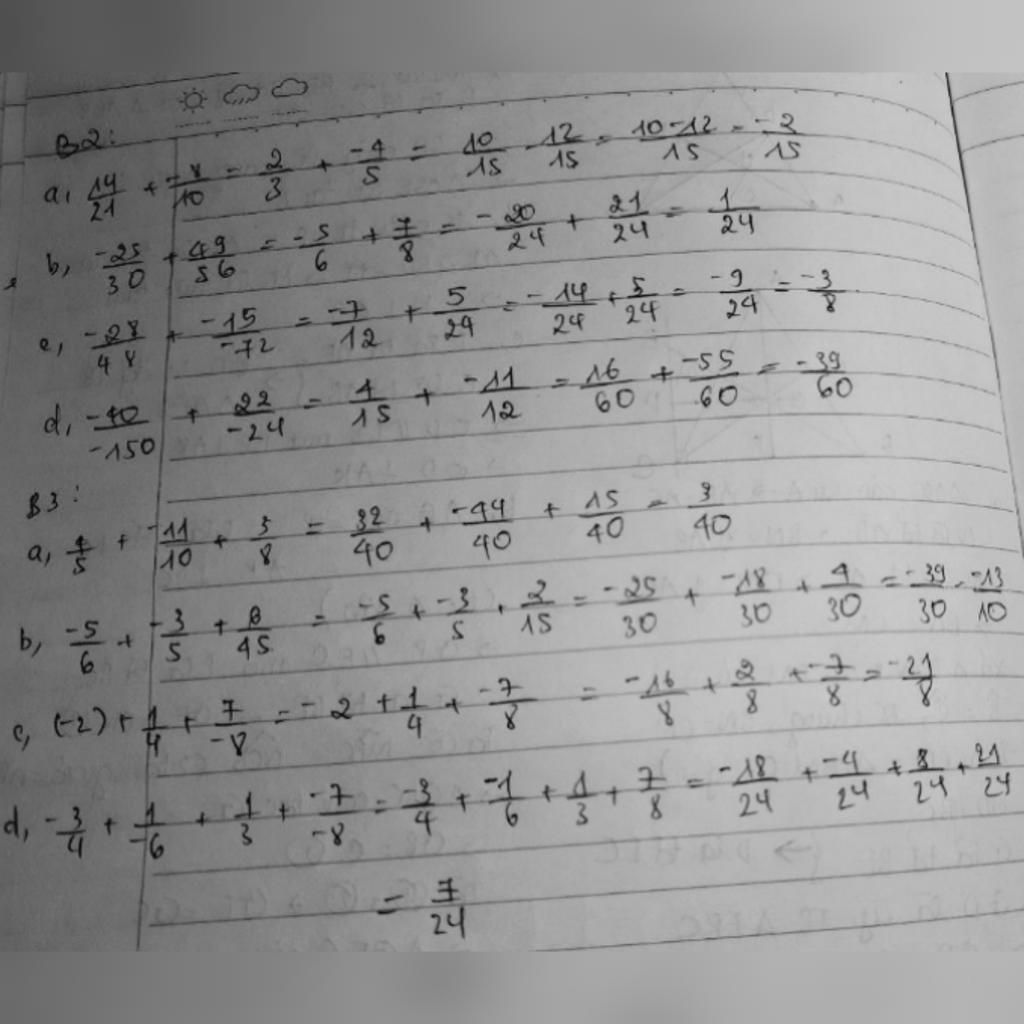 B2:
a, 14/21 + -8/10 = 2/3 + -4/5 = 10/15 - 12/15 = 10-12/15 = -2/15
b, -25/30 + 49/56 = -5/6 + 7/8 = -20/24 + 21/24 = 1/24
c, -28/48 + -15/-72 = -7/12 + 5/24 = -14/24 + 5/24 = -9/24 = -3/8
d, -40/-150 + 22/-24 = 4/15 + -11/12 = 16/60 + -55/60 = -39/60
B3:
a, 4/5 + -11/10 + 3/8 = 32/40 + -44/40 + 15/40 = 3/40
b, -5/6 + -3/5 + 6/45 = -5/6 + -3/5 + 2/15 = -25/30 + -18/30 + 4/30 = -39/30 = -13/10
c, (-2) + 1/4 + 7/-8 = -2 + 1/4 + -7/8 = -16/8 + 2/8 + -7/8 = -21/8
d, -3/4 + 1/-6 + 1/3 + -7/-8 = -3/4 + -1/6 + 1/3 + 7/8 = -18/24 + -4/24 + 8/24 + 21/24
= 7/24